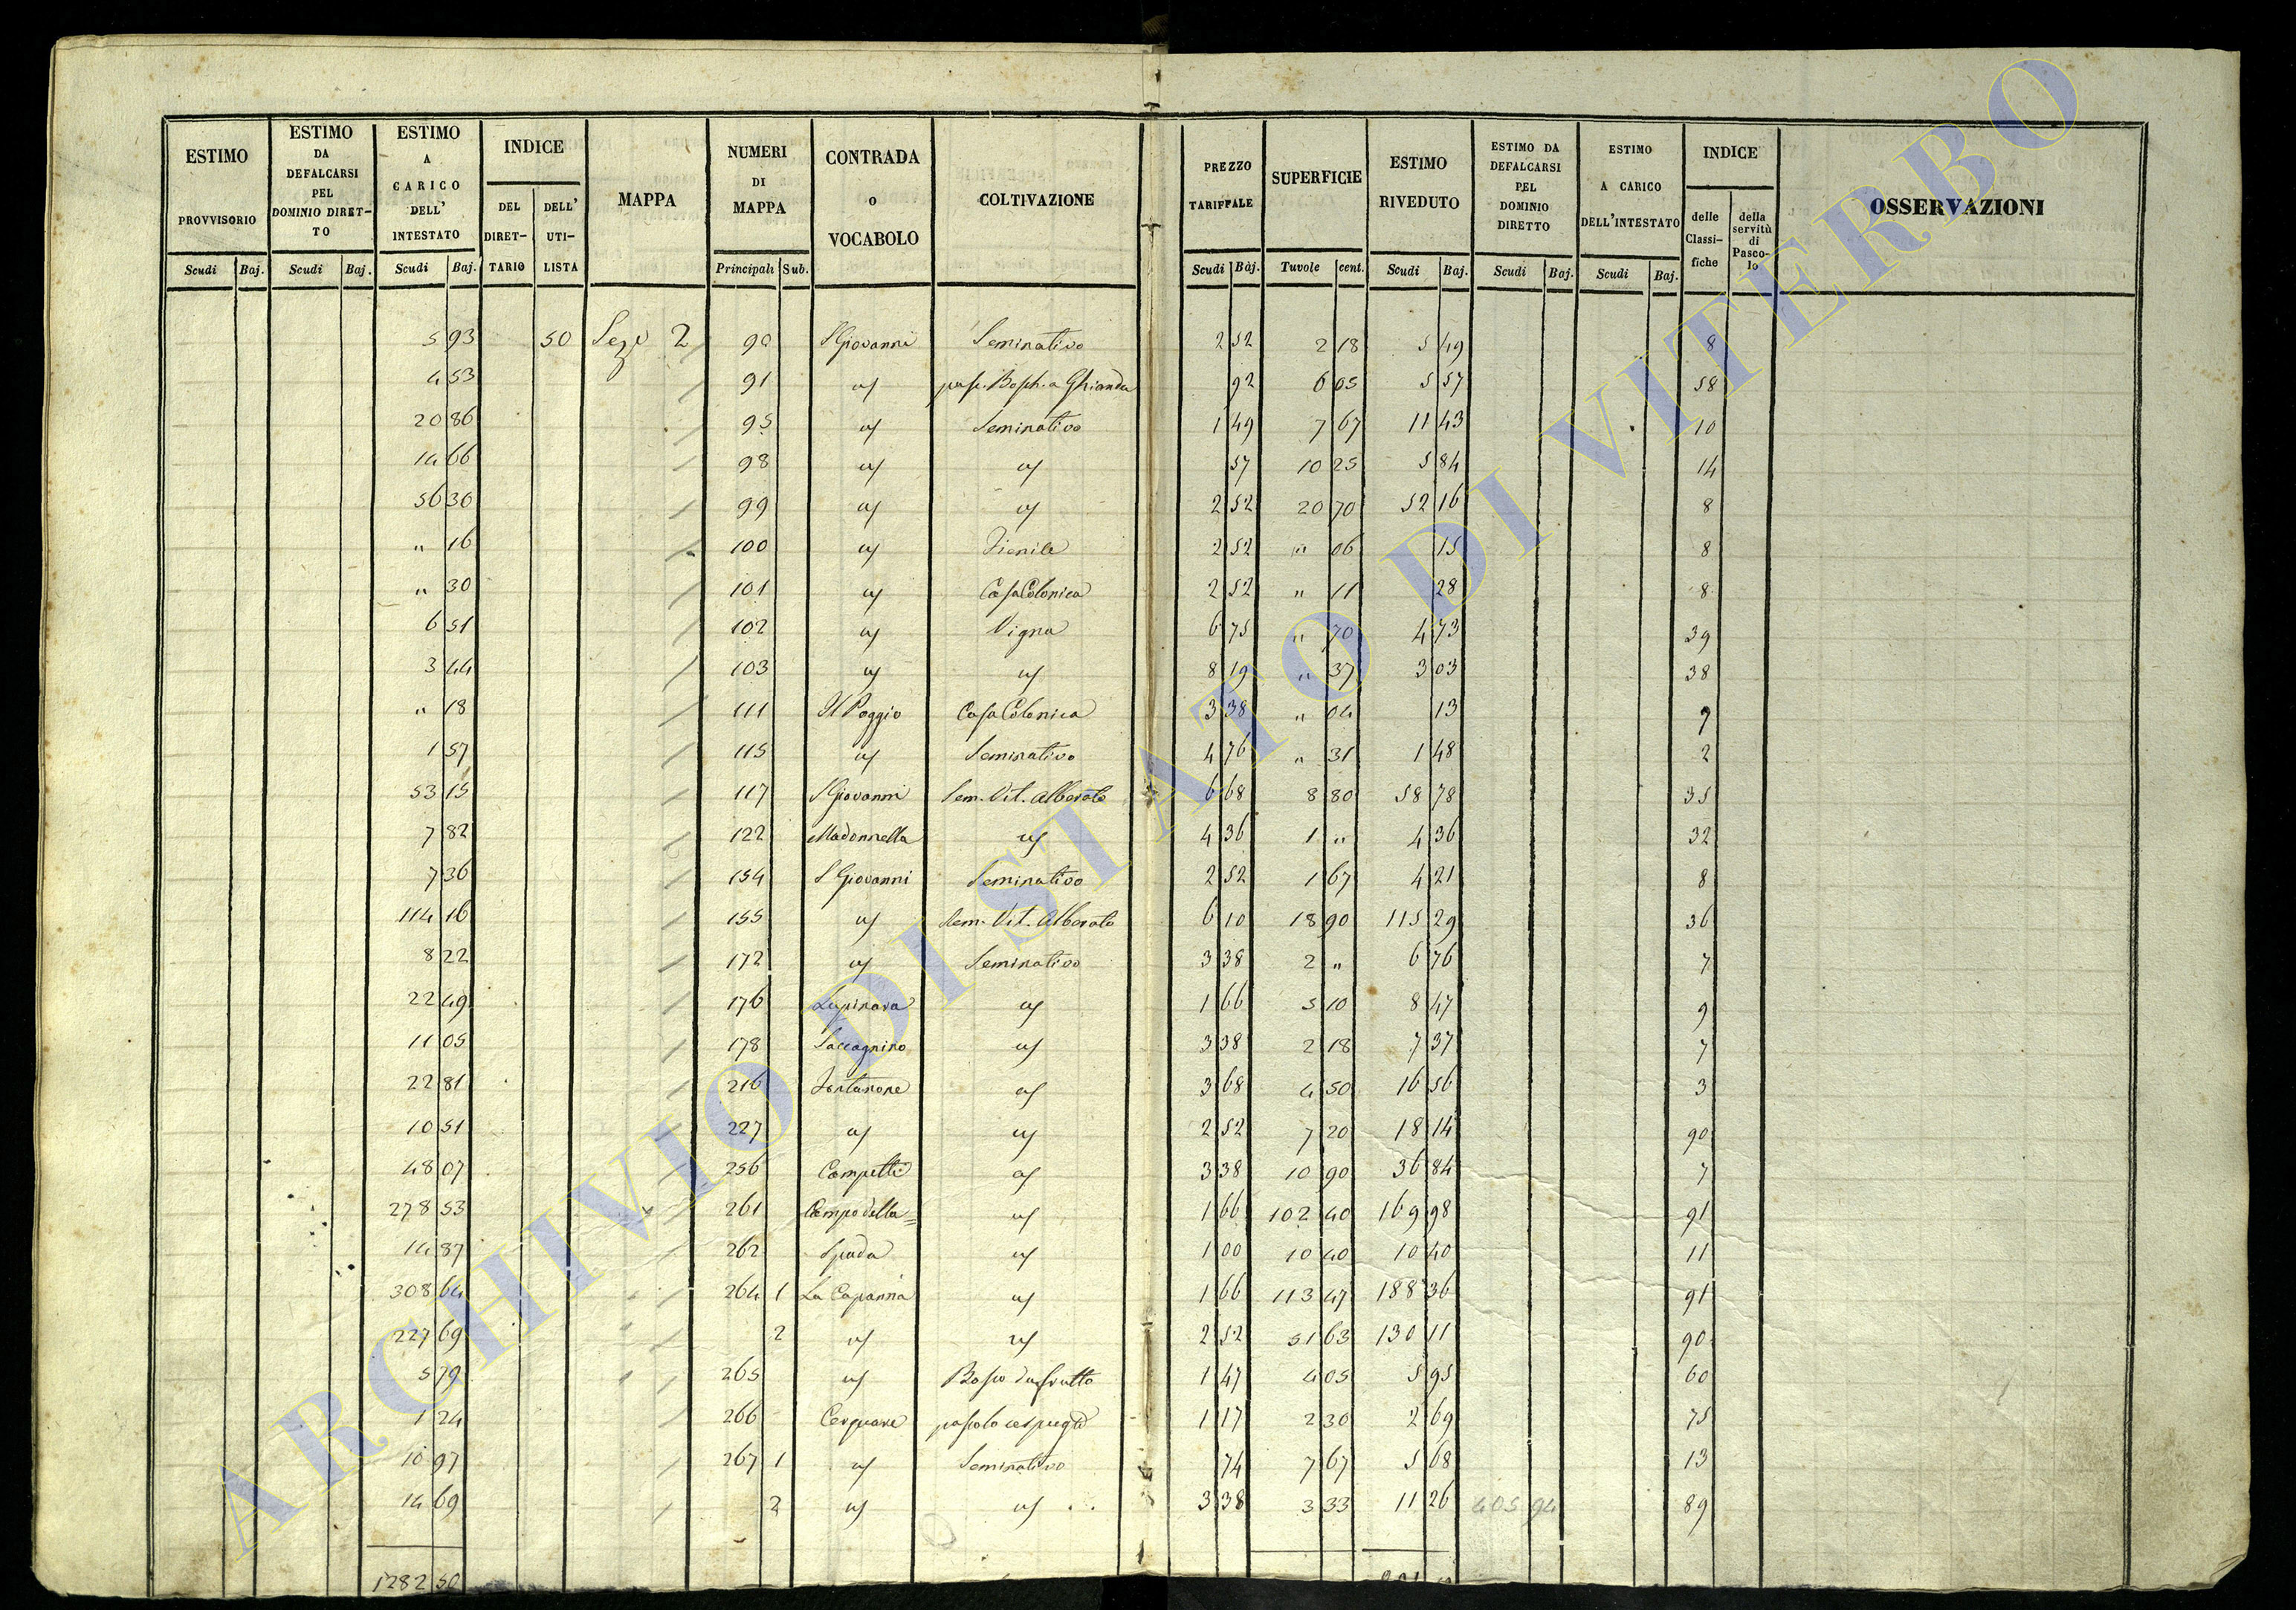 ESTIMO PROVVISORIO Scudi Baj.
ESTIMO DA DEFALCARSI PEL DOMINIO DIRET-TO Scudi Baj.
ESTIMO A CARICO DELL' INTESTATO Scudi Baj.
INDICE DEL DIRET-TARIO DELL' UTI-LISTA
MAPPA
NUMERI DI MAPPA Principali Sub.
CONTRADA o VOCABOLO
COLTIVAZIONE
PREZZO TARIFFALE Scudi Baj.
SUPERFICIE Tavole cent.
ESTIMO RIVEDUTO Scudi Baj.
ESTIMO DA DEFALCARSI PEL DOMINIO DIRETTO Scudi Baj.
ESTIMO A CARICO DELL'INTESTATO Scudi Baj.
INDICE delle Classi-fiche della servitù di Pasco-lo
OSSERVAZIONI
5 93 50 Sez 2 90 S Giovanni Seminativo 2 52 2 18 5 49 8
4 53 91 " 92 6 05 5 57 58
20 86 95 " Seminativo 1 49 7 67 11 43 10
14 66 98 " " 57 10 25 5 84 14
56 30 99 " " 2 52 20 70 52 16 8
" 16 100 " Fienile 2 52 " 06 15 8
" 30 101 " Casa Colonica 2 52 " 11 28 8
6 51 102 " Vigna 6 75 " 70 4 73 39
3 44 103 " " 8 19 " 37 3 03 38
" 18 111 Il Poggio Casa Colonica 3 38 " 04 13 7
1 57 115 " Seminativo 4 76 " 31 1 48 2
53 15 117 S Giovanni Sem. Vit. Alberato 6 68 8 80 58 78 35
7 82 122 Madonnella " 4 36 1 " 4 36 32
7 36 154 S Giovanni Seminativo 2 52 1 67 4 21 8
114 16 155 " Sem. Vit. Alberato 6 10 18 90 115 29 36
8 22 172 " Seminativo 3 38 2 " 6 76 7
22 49 176 Lupinara " 1 66 5 10 8 47 9
11 05 178 Saccagnino " 3 38 2 18 7 37 7
22 81 216 Fontanone " 3 68 4 50 16 56 3
10 51 227 " " 2 52 7 20 18 14 90
48 07 256 Campetti " 3 38 10 90 36 84 7
278 53 261 Campo della= " 1 66 102 40 169 98 91
14 87 262 Spada " 1 00 10 40 10 40 11
308 64 264 1 La Capanna " 1 66 113 47 188 36 91
227 69 2 " " 2 52 51 63 130 11 90
5 79 265 " Bosco da frutto 1 47 4 05 5 95 60
1 24 266 Cerquare pascolo cespugli 1 17 2 30 2 69 75
10 97 267 1 " Seminativo 74 7 67 5 68 13
14 69 2 " " 3 38 3 33 11 26 405 94 89
1282 50
ARCHIVIO DI STATO DI VITERBO